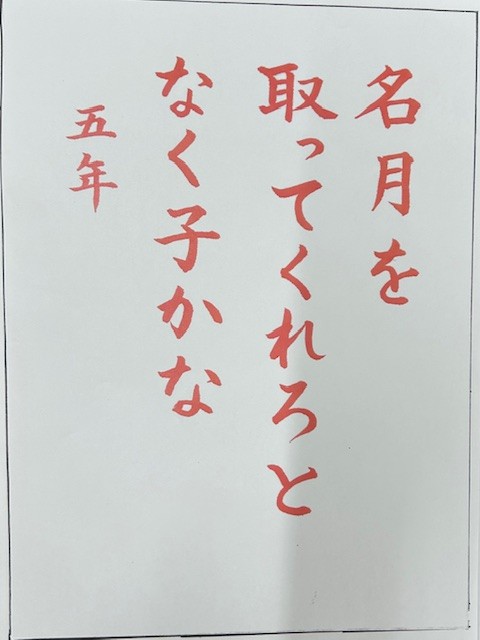 名月を
取ってくれろと
なく子かな
五年